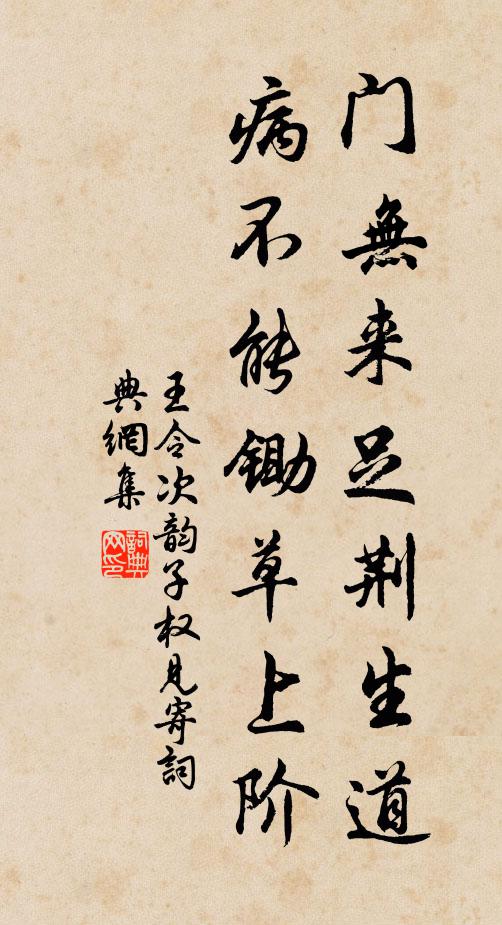 门無来足荆生道
病不能锄草上阶
王令次韵子权见寄詞
典網集
詞典
网印